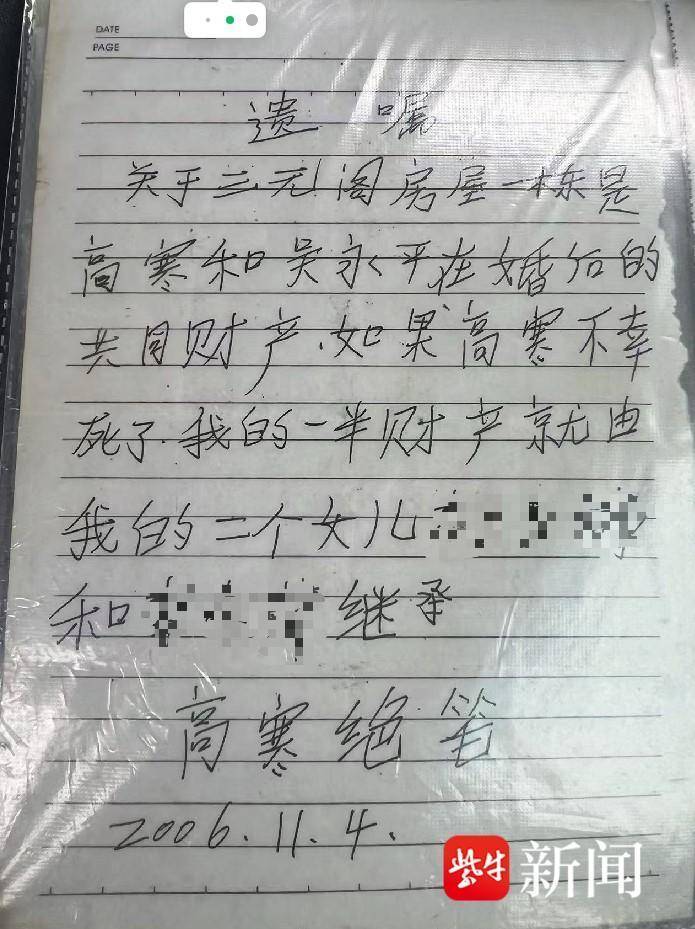 DATE
PAGE
遗嘱
关于三元阁房屋一栋是
高寒和吴永平在婚后的
共同财产.如果高寒不幸
死了.我的一半财产就由
我的二个女儿
和 继承
高寒绝笔
2006.11.4.
紫牛新闻